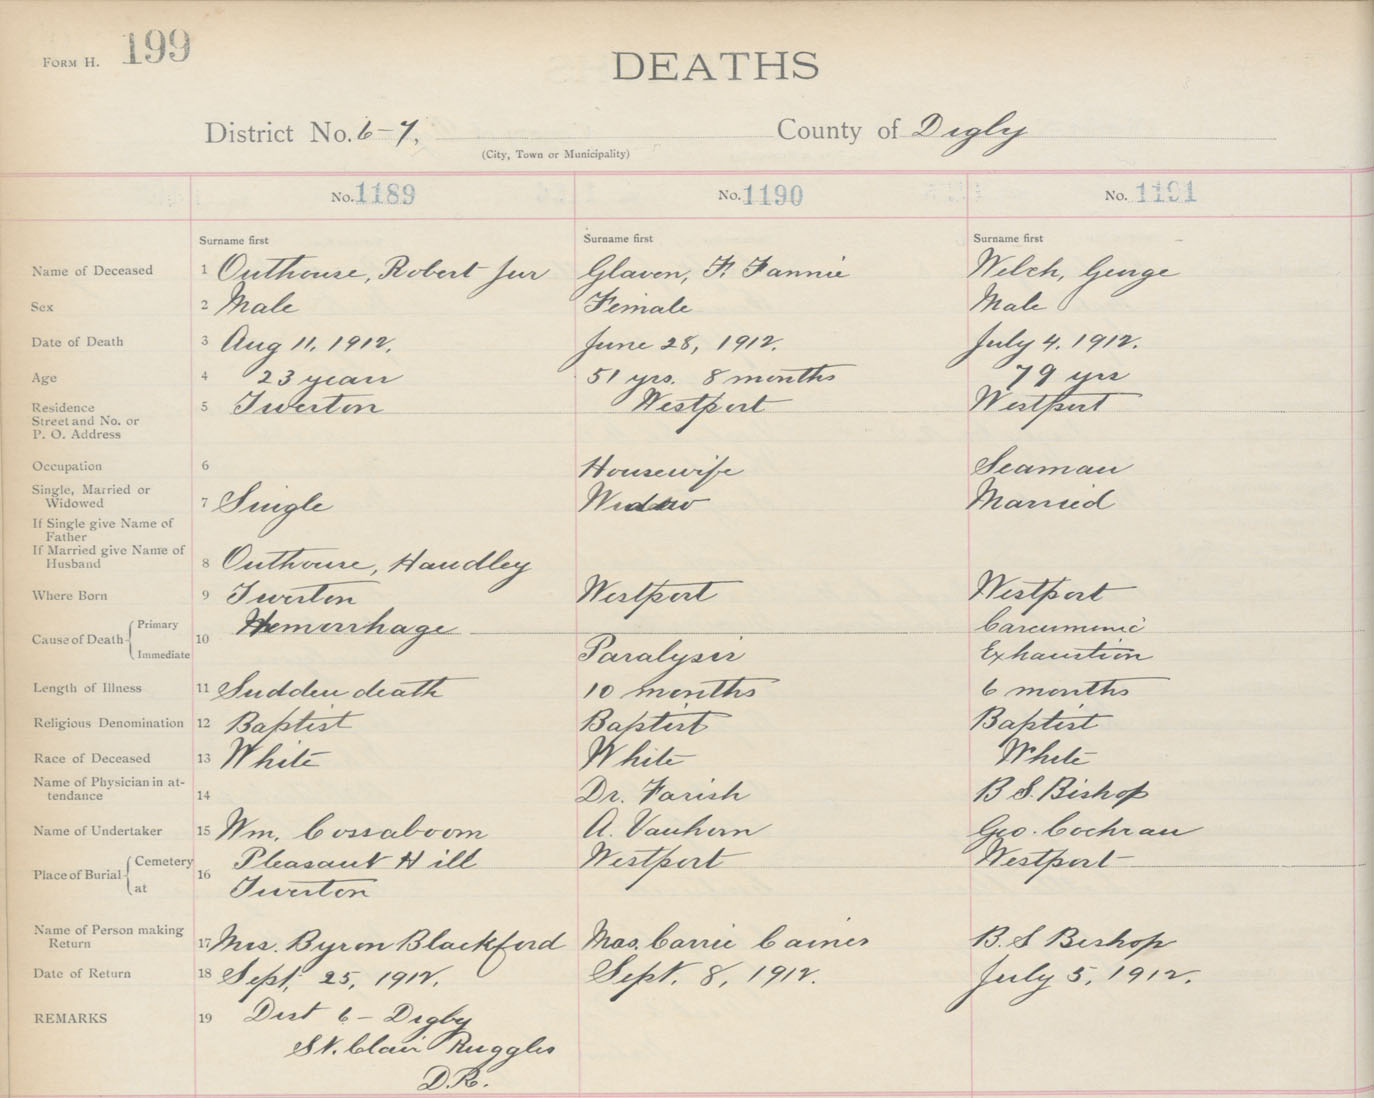 FORM H. 199
DEATHS
District No. 6-7, County of Digby
(City, Town or Municipality)
No. 1189 No. 1190 No. 1191
Surname first Surname first Surname first
Name of Deceased 1 Outhouse, Robert Jur Glaven, F. Fannie Welch, George
Sex 2 Male Female Male
Date of Death 3 Aug 11, 1912. June 28, 1912. July 4, 1912.
Age 4 23 years 51 yrs. 8 months 79 yrs
Residence 5 Tiverton Westport Westport
Street and No. or
P. O. Address
Occupation 6 Housewife Seaman
Single, Married or
Widowed 7 Single Widow Married
If Single give Name of
Father
If Married give Name of
Husband 8 Outhouse, Handley
Where Born 9 Tiverton Westport Westport
Cause of Death 10 Primary Hemorrhage
Immediate Paralysis Exhaustion
Length of Illness 11 Sudden death 10 months 6 months
Religious Denomination 12 Baptist Baptist Baptist
Race of Deceased 13 White White White
Name of Physician in at-
tendance 14 Dr. Farish B S. Bishop
Name of Undertaker 15 Wm. Cossaboom A. Vanhorn Geo. Cochran
Place of Burial 16 Cemetery Pleasant Hill Westport Westport
at Tiverton
Name of Person making
Return 17 Mrs. Byron Blackford Mrs. Carrie Caines B. S Bishop
Date of Return 18 Sept. 25, 1912. Sept. 8, 1912. July 5, 1912.
REMARKS 19 Dist 6 - Digby
St. Clair Ruggles
D.R.